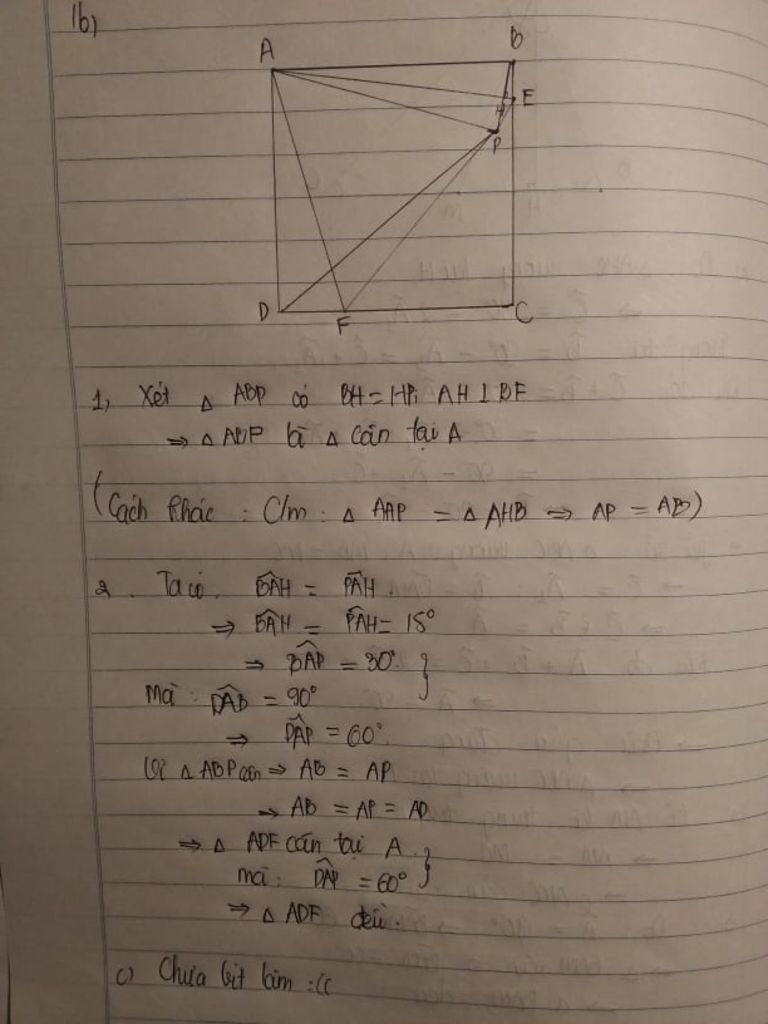 1b)
A
B
E
H
P
D
F
C
1, Xét △ ABP có BH = HP; AH ⊥ BF
⇒ △ ABP là △ cân tại A
(Cách khác : C/m : △ AAP = △ AHB ⇒ AP = AB)
2. Ta có. BÂH = PÂH.
⇒ BÂH = PÂH = 15°
⇒ BÂP = 30° }
Mà : DÂB = 90°
⇒ DÂP = 60°.
Vì △ ABP cân ⇒ AB = AP
⇒ AB = AP = AD
⇒ △ ADF cân tại A. }
mà : DÂP = 60°
⇒ △ ADF đều.
c) Chưa bít làm :((